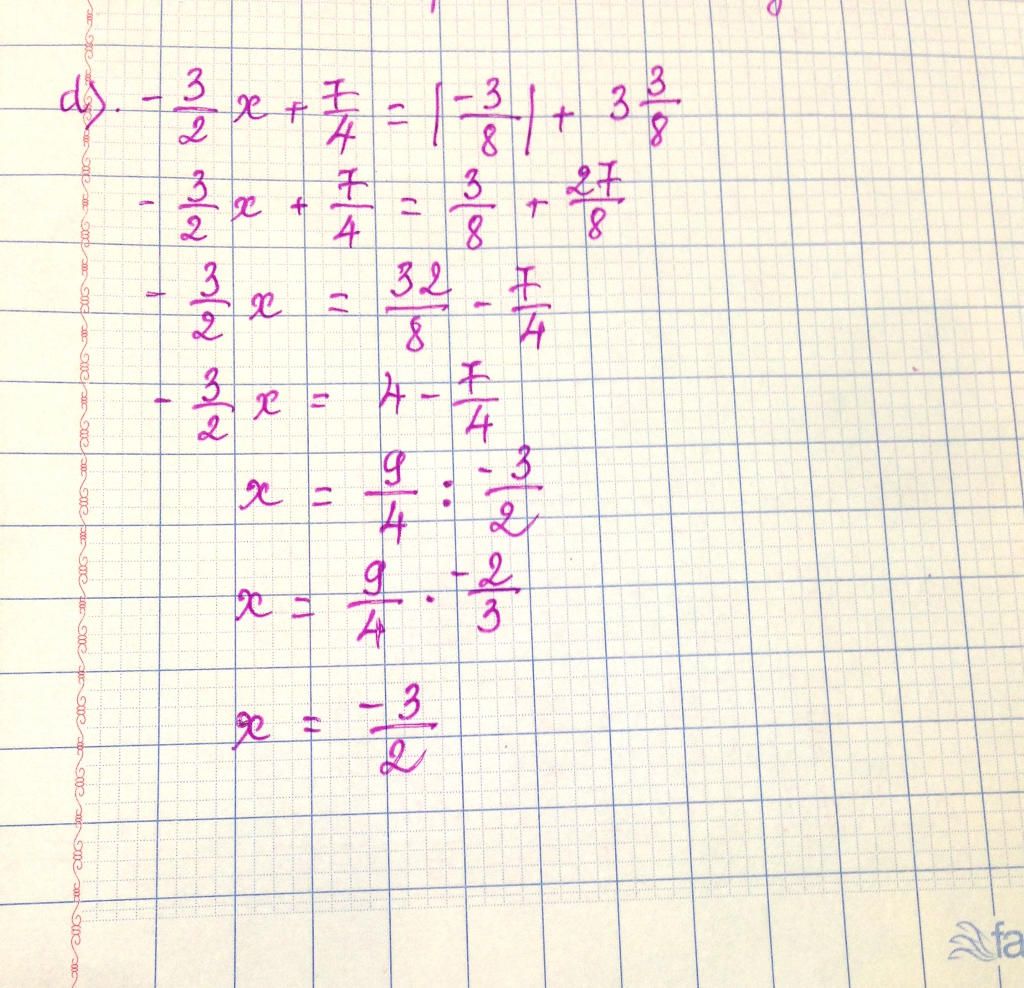 d). - 3/2 x + 7/4 = |-3/8| + 3 3/8
- 3/2 x + 7/4 = 3/8 + 27/8
- 3/2 x = 32/8 - 7/4
- 3/2 x = 4 - 7/4
x = 9/4 : -3/2
x = 9/4 . -2/3
x = -3/2
fa